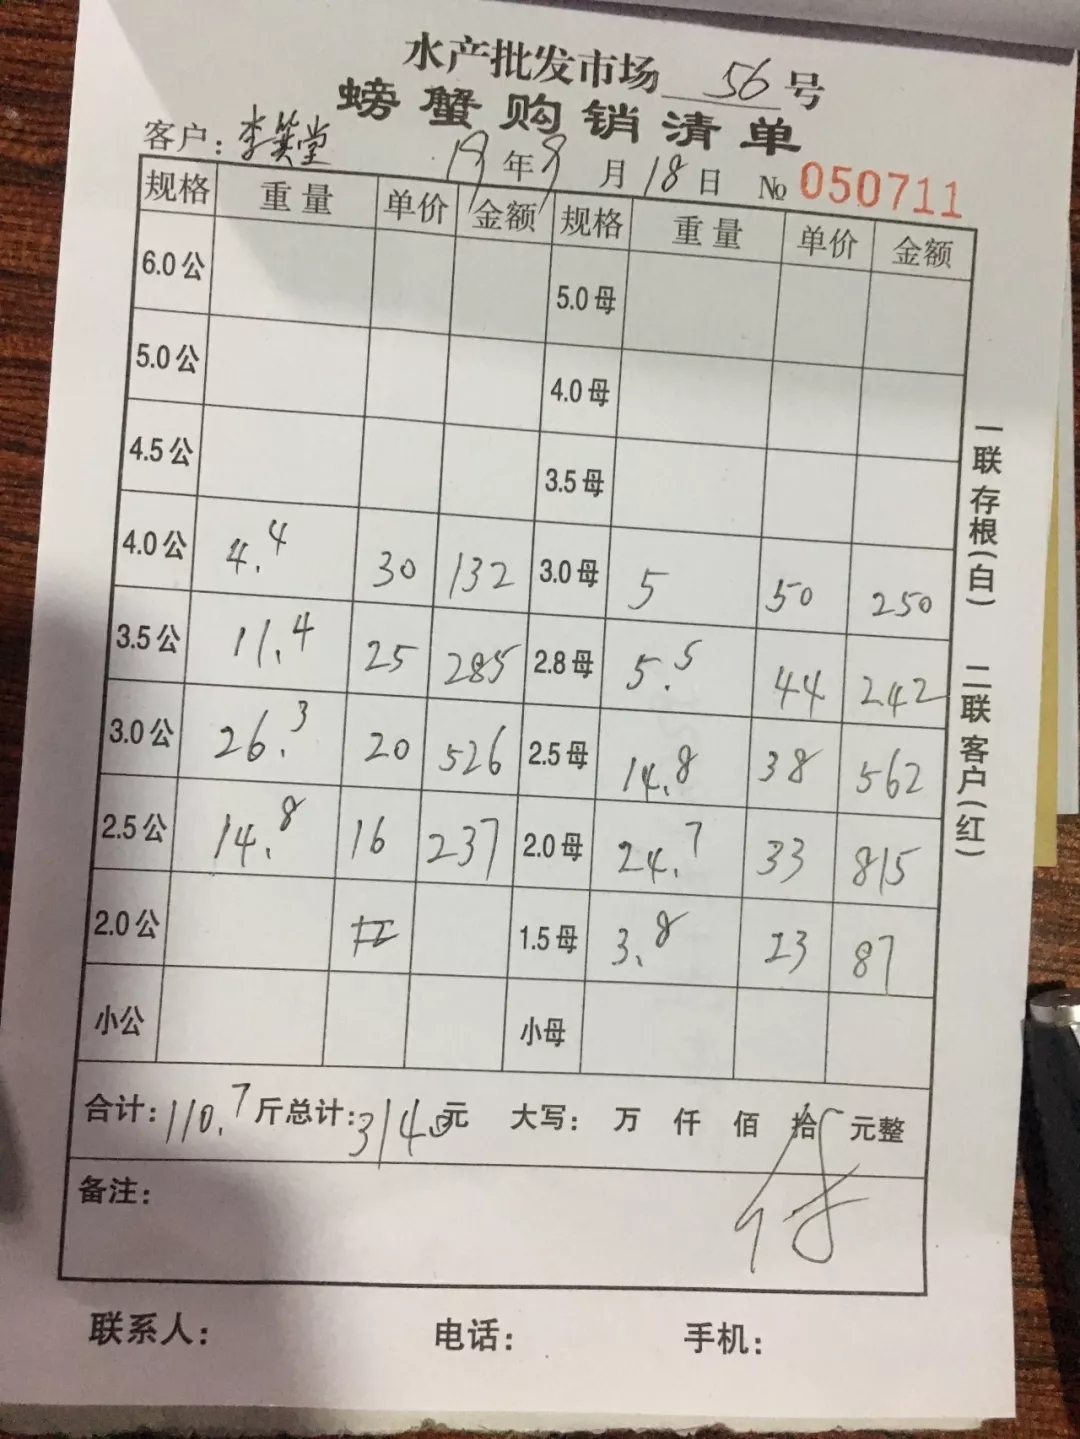 水产批发市场 56 号
螃蟹购销清单
客户：李笑堂 19年9月18日 № 050711
规格 重量 单价 金额 规格 重量 单价 金额
6.0公 5.0母
5.0公 4.0母
4.5公 3.5母
4.0公 4.4 30 132 3.0母 5 50 250
3.5公 11.4 25 285 2.8母 5.5 44 242
3.0公 26.3 20 526 2.5母 14.8 38 562
2.5公 14.8 16 237 2.0母 24.7 33 815
2.0公 1.5母 3.8 23 87
小公 小母
合计：110.7斤 总计：3140元 大写： 万 仟 佰 拾 元整
备注：
付
联系人： 电话： 手机：
一联存根(白) 二联客户(红)